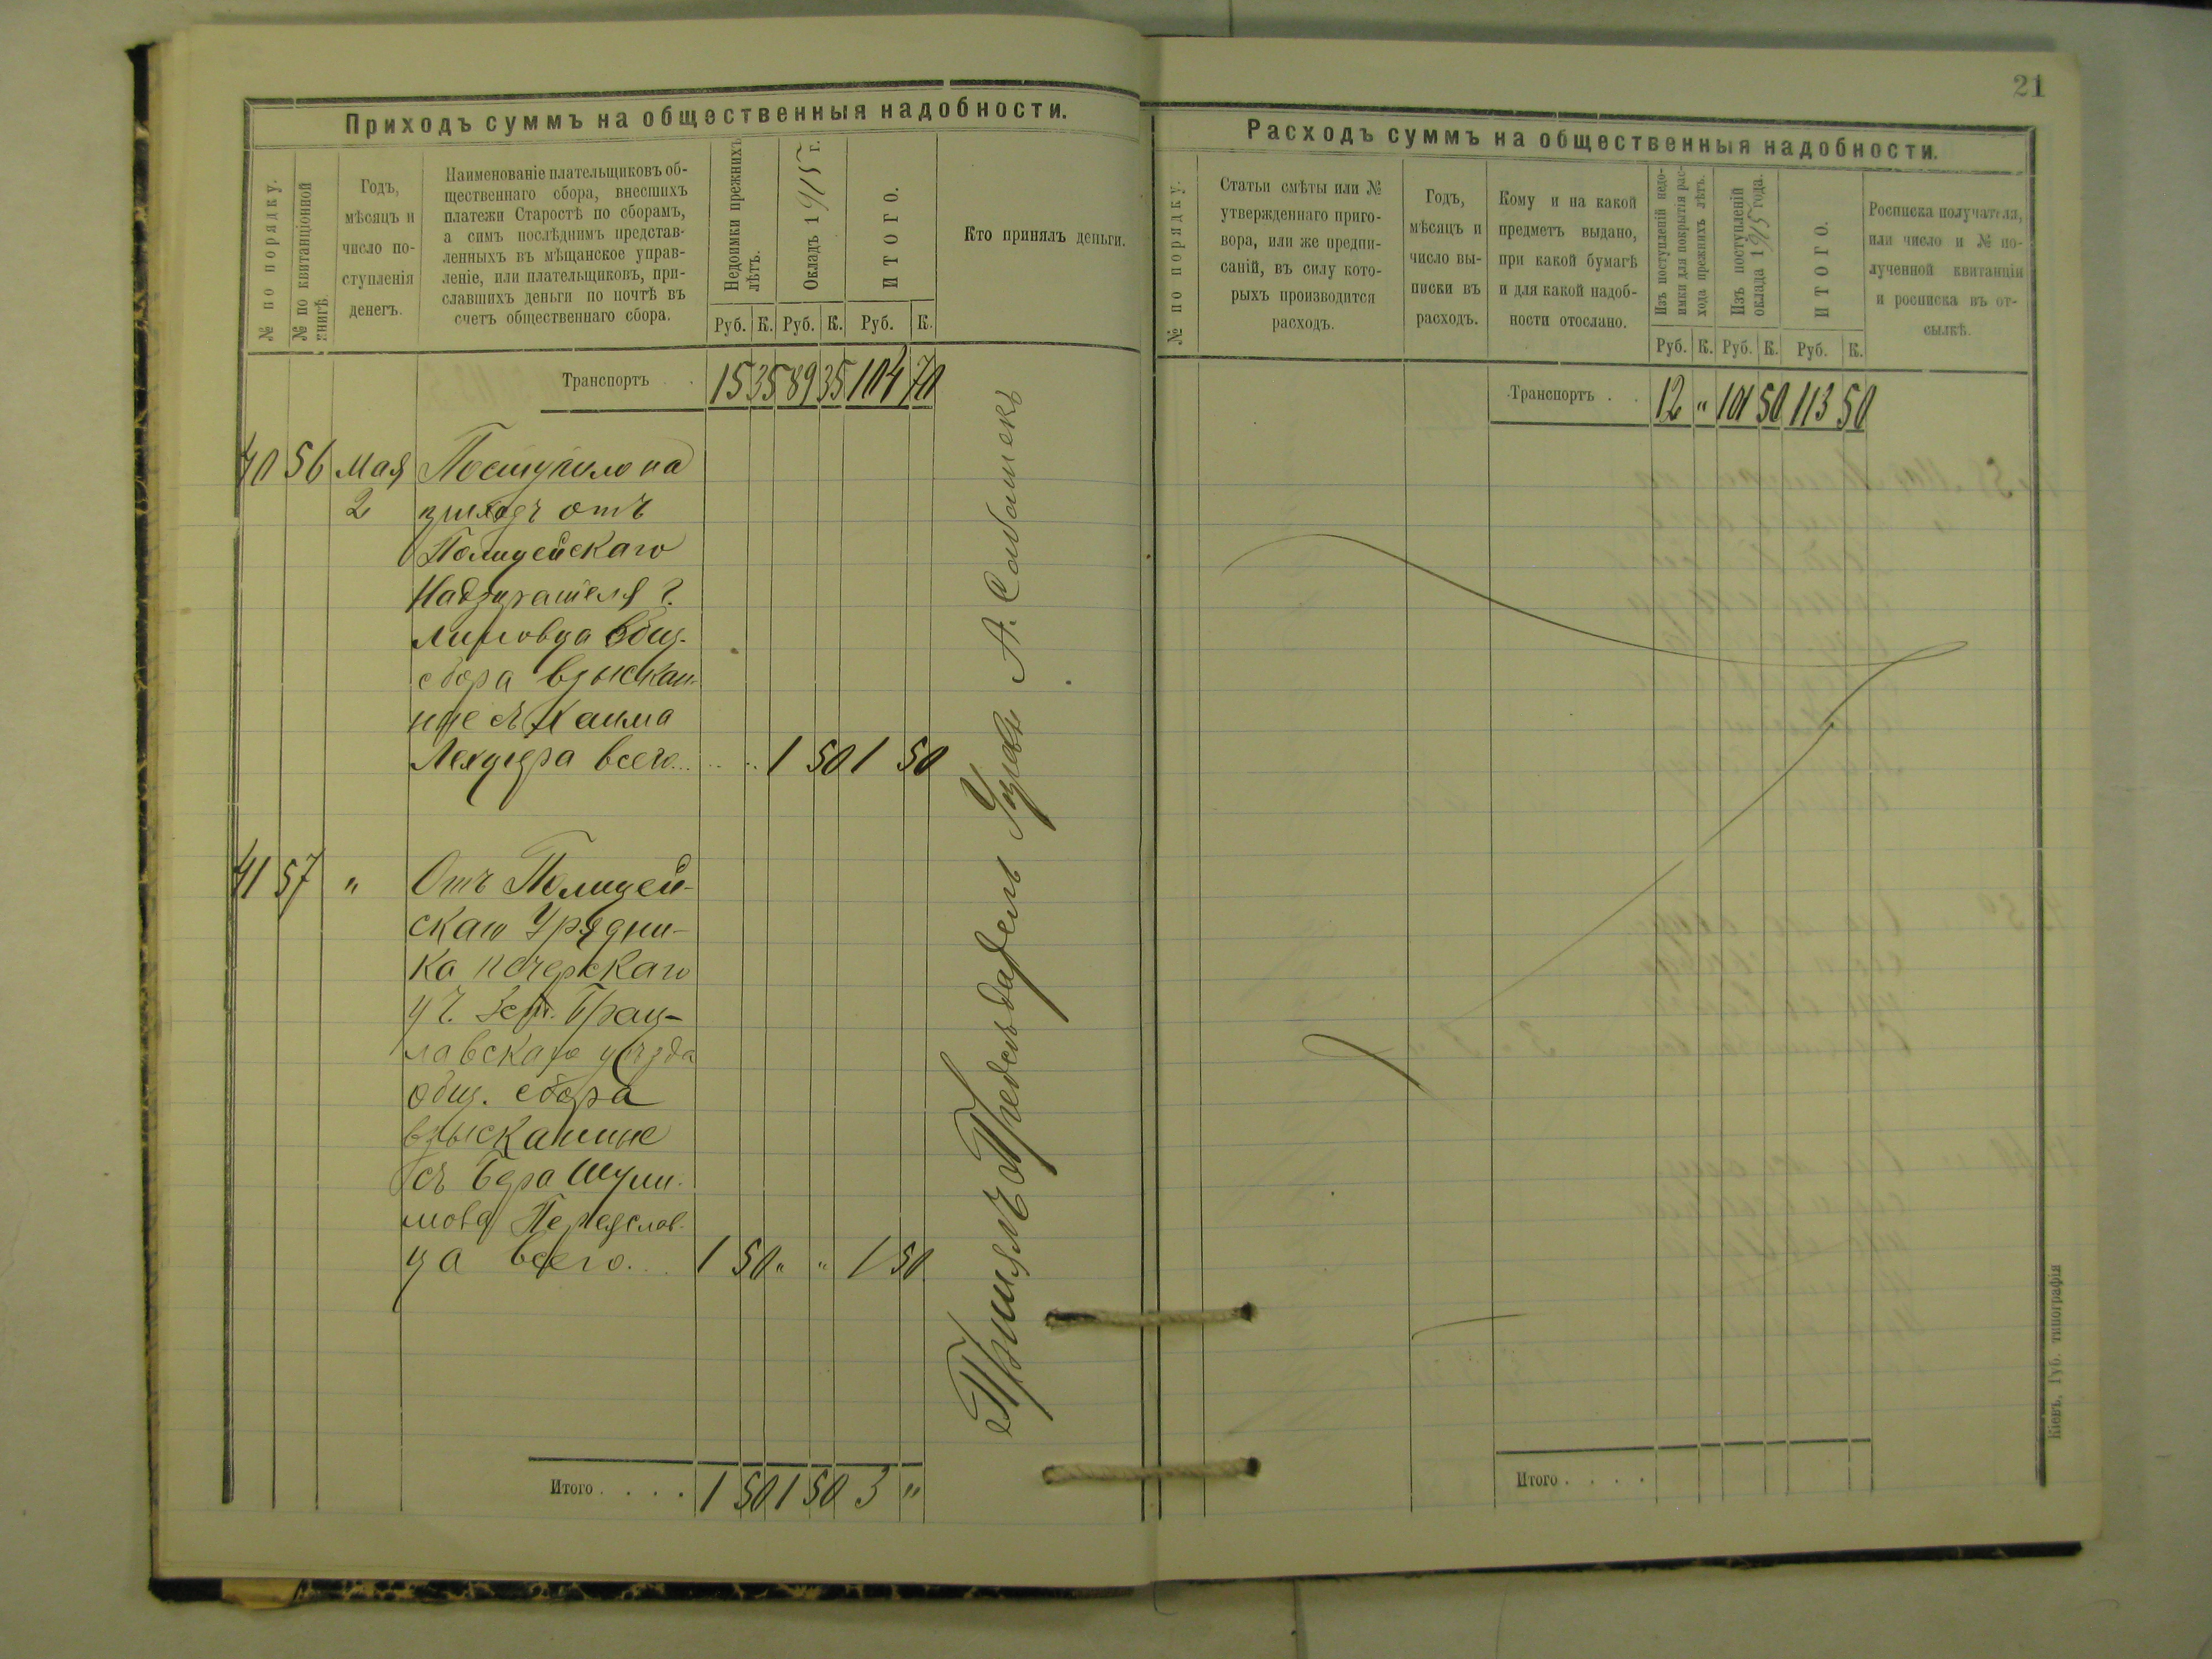 21
Приходъ суммъ на общественныя надобности.
№ по порядку.
№ по квитанціонной
книгѣ.
Годъ,
мѣсяцъ и
число по-
ступленія
денегъ.
Наименованіе плательщиковъ об-
щественнаго сбора, внесшихъ
платежи Старостѣ по сборамъ,
а симъ послѣднимъ представ-
ленныхъ въ мѣщанское управ-
леніе, или плательщиковъ, при-
славшихъ деньги по почтѣ въ
счетъ общественнаго сбора.
Недоимки прежнихъ
лѣтъ.
Окладъ 1915 г.
ИТОГО.
Кто принялъ деньги.
Руб. К. Руб. К. Руб. К.
Транспортъ . . 15 35 89 35 104 70
40 56 Мая Поступило на
2 приходъ отъ
Полицейскаго
Надзирателя г.
Липовца Общ.
сбора взыскан-
ные съ Хаима
всего... 1 50 1 50
41 57 " Отъ Полицей-
скаго Урядни-
ка Печерскаго
уч. Брац-
лавскаго уѣзда
общ. сбора
взысканные
съ Бера Шули-
мова Переяслав-
ца всего... 1 50 " " 1 50
Итого . . . . 1 50 1 50 3 "
А.
Расходъ суммъ на общественныя надобности.
№ по порядку.
Статьи смѣты или №
утвержденнаго приго-
вора, или же предпи-
саній, въ силу кото-
рыхъ производится
расходъ.
Годъ,
мѣсяцъ и
число вы-
писки въ
расходъ.
Кому и на какой
предметъ выдано,
при какой бумагѣ
и для какой надоб-
ности отослано.
Изъ поступленій недо-
имки для покрытія рас-
хода прежнихъ лѣтъ.
Изъ поступленій
оклада 1915 года.
ИТОГО.
Росписка получателя,
или число и № по-
лученной квитанціи
и росписка въ от-
сылкѣ.
Руб. К. Руб. К. Руб. К.
Транспортъ . . 12 " 101 50 113 50
Итого . . . .
Кіевъ, Губ. типографія